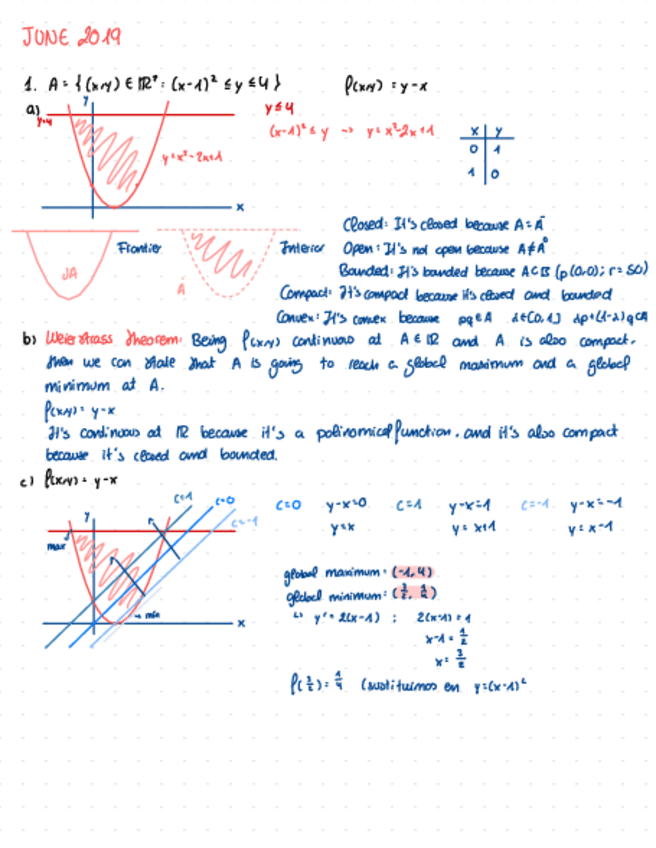 JUNE 2019
1. A = { (x,y) ∈ IR² : (x-1)² ≤ y ≤ 4 } f(x,y) = y-x
a) y
y=4
y ≤ 4
(x-1)² ≤ y → y = x²-2x+1
x y
0 1
1 0
y = x²-2x+1
x
Closed: It's closed because A = Ā
Frontier
Interior
Open: It's not open because A ≠ Å
∂A
Å
Bounded: It's bounded because A⊂B (p(0,0); r=50)
Compact: It's compact because it's closed and bounded
Convex: It's convex because pq∈A λ∈[0,1] λp+(1-λ)q⊂A
b) Weierstrass theorem: Being f(x,y) continuous at A∈IR and A is also compact,
then we can state that A is going to reach a global maximum and a global
minimum at A.
f(x,y) = y-x
It's continuous at IR because it's a polinomical function, and it's also compact
because it's closed and bounded.
c) f(x,y) = y-x
C=1 C=0 C=-1
y
max
min
x
C=0 y-x=0 C=1 y-x=1 C=-1 y-x=-1
y=x y=x+1 y=x-1
global maximum: (-1,4)
global minimum: (3/2, 1/2)
↳ y' = 2(x-1) ; 2(x-1) = 1
x-1 = 1/2
x = 3/2
f(3/2) = 1/4 (sustituimos en y=(x-1)²